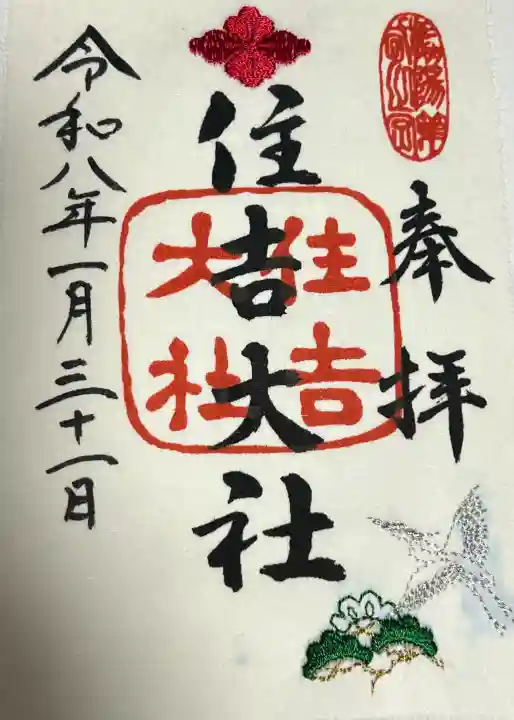 奉拝
住吉大社
住吉大社
令和八年一月三十一日